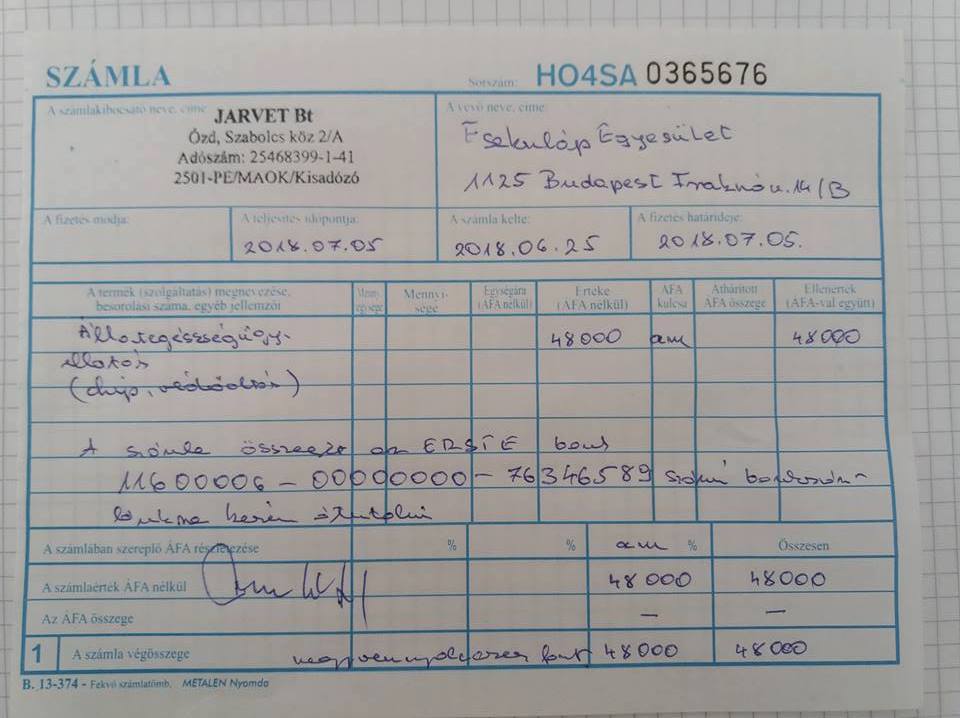 SZÁMLA Sorszám: HO4SA 0365676
A számlakibocsátó neve, címe A vevő neve, címe:
JARVET Bt
Ózd, Szabolcs köz 2/A
Adószám: 25468399-1-41
2501-PE/MAOK/Kisadózó
Esekuláp Egyesület
1125 Budapest 14/B
A fizetés módja: A teljesítés időpontja: A számla kelte: A fizetés határideje:
2018.07.05 2018.06.25 2018.07.05.
A termék (szolgáltatás) megnevezése, besorolási száma, egyéb jellemzői
Menny. egysége
Mennyisége
Egységára (ÁFA nélkül)
Értéke (ÁFA nélkül)
ÁFA kulcsa
Áthárított ÁFA összege
Ellenérték (ÁFA-val együtt)
Állategészségügy- 48000 am 48000
ellátás
(chip, védőoltás)
A számla összegét az ERSTE bank
11600006-00000000-76346589 számú bankszám-
lánkra kérem átutalni
A számlában szereplő ÁFA részletezése % % am % Összesen
A számlaérték ÁFA nélkül 48000 48000
Az ÁFA összege – –
1 A számla végösszege negyvennyolcezer forint 48000 48000
B. 13-374 - Fekvő számlatömb. METALEN Nyomda